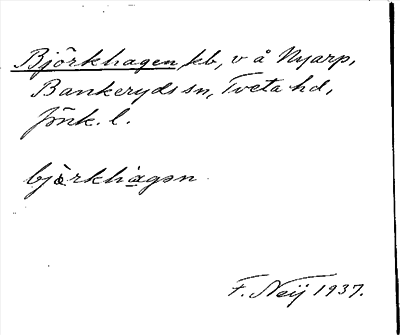 Björkhagen kb, v å Nyarp,
Bankeryds sn, Tveta hd,
Jönk. l.
bjærkhagən
F. Neij 1937.